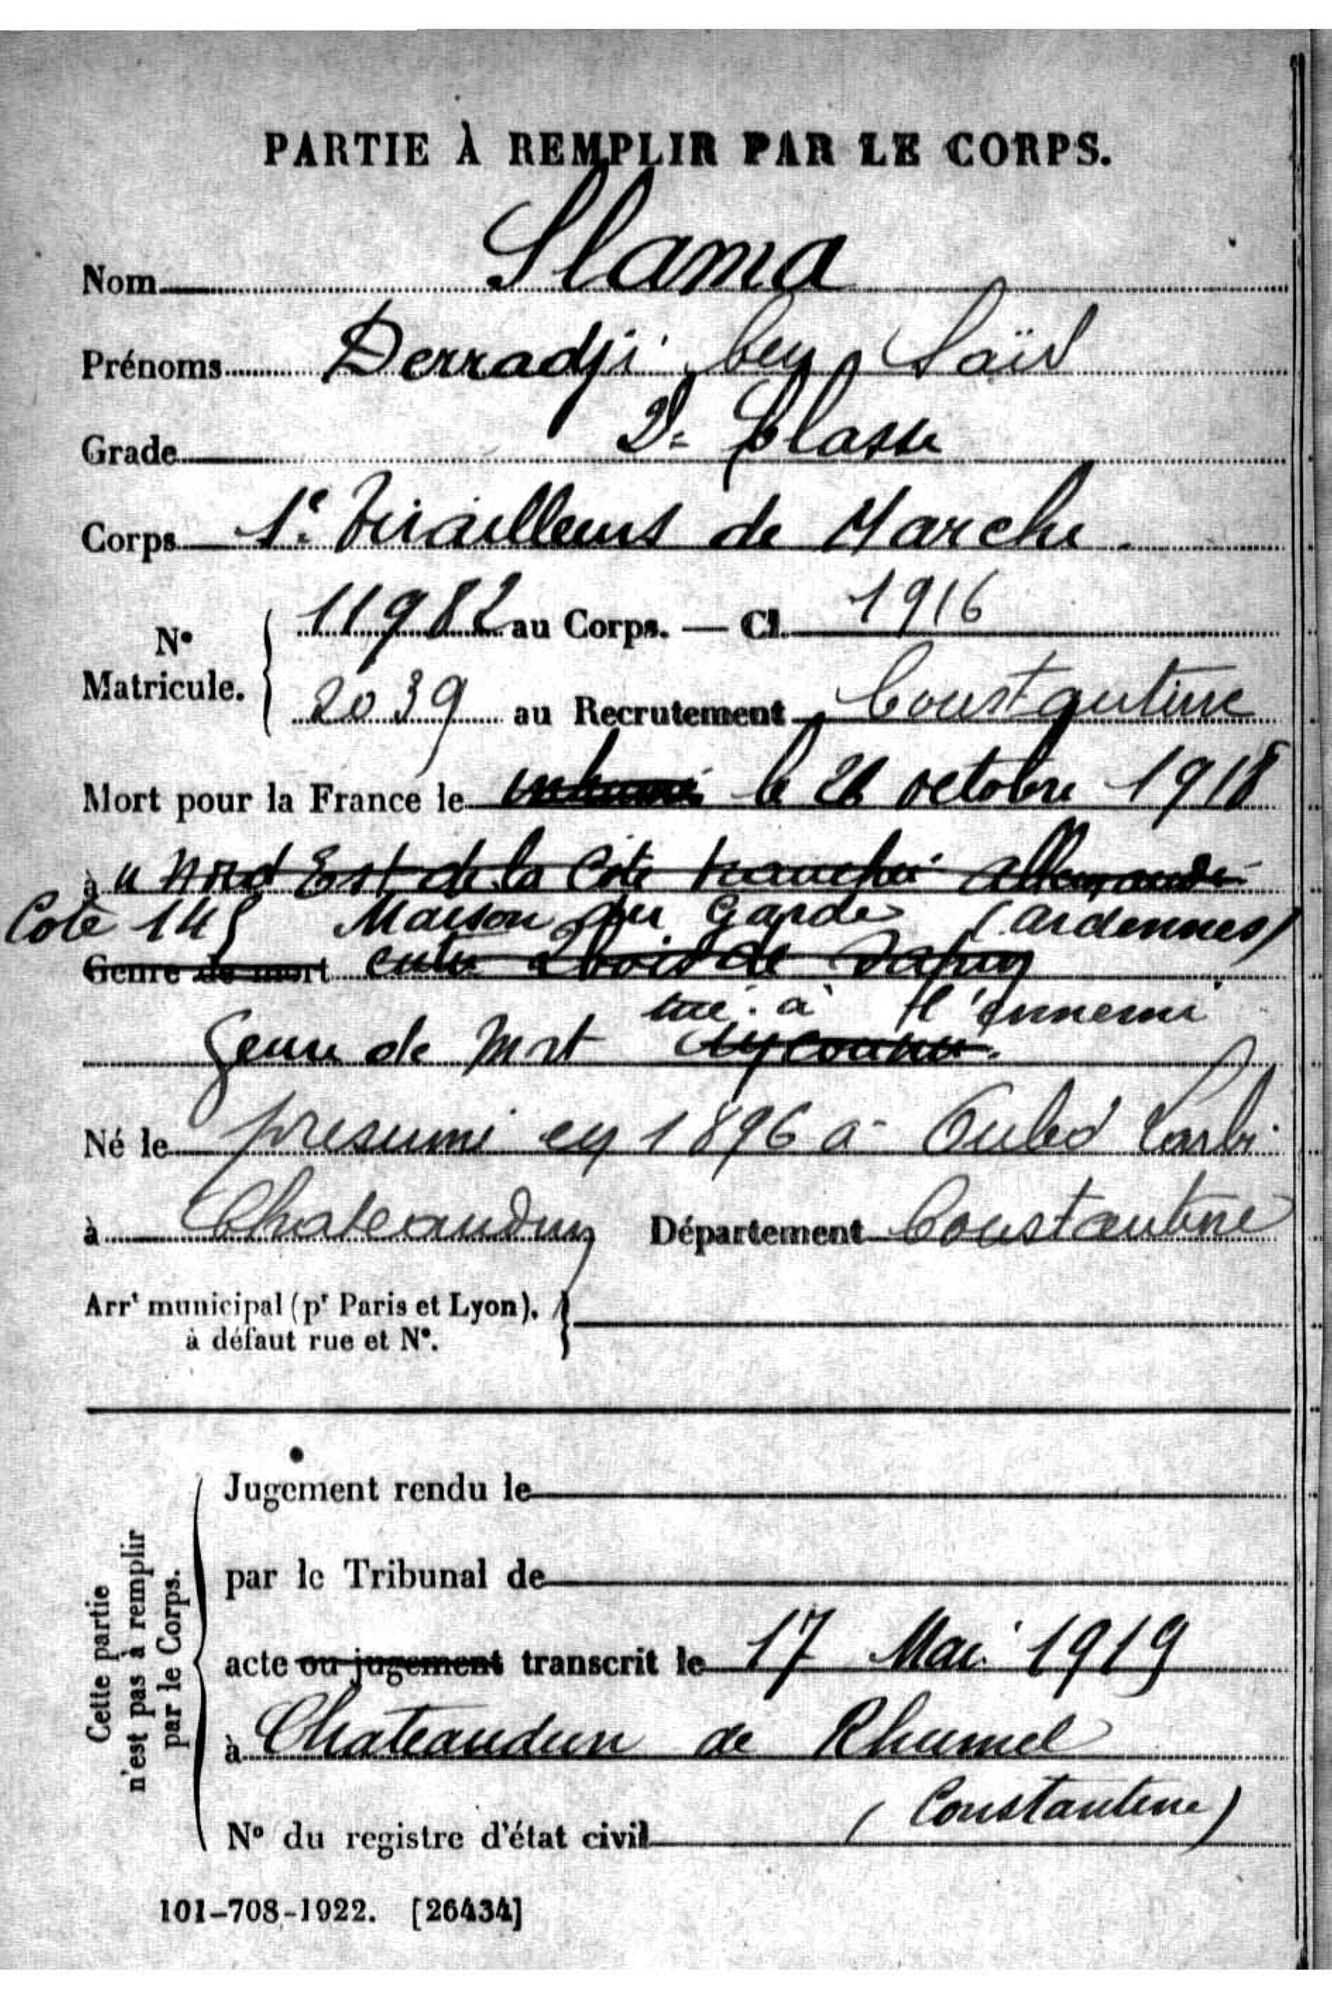 PARTIE À REMPLIR PAR LE CORPS.
Nom Slama
Prénoms Derradji ben Saïd
Grade 2e Classe
Corps 1e Tirailleurs de Marche.
N° Matricule. 11982 au Corps. — Cl. 1916
2039 au Recrutement Constantine
Mort pour la France le inhumé le 26 octobre 1918
à u Nord Est de la Cote tranchée allemande
Cote 145 Maison du Garde (ardennes)
Genre de mort entre bois de
tué à l'ennemi
Genre de Mort Inconnu.
Né le présumé en 1896 à Ouled Larbi
à Chateaudun Département Constantine
Arrt municipal (pr Paris et Lyon),
à défaut rue et N°.
Cette partie
n'est pas à remplir
par le Corps.
Jugement rendu le
par le Tribunal de
acte ou jugement transcrit le 17 Mai 1919
à Chateaudun de Rhumel
(Constantine)
N° du registre d'état civil
101-708-1922. [26434]